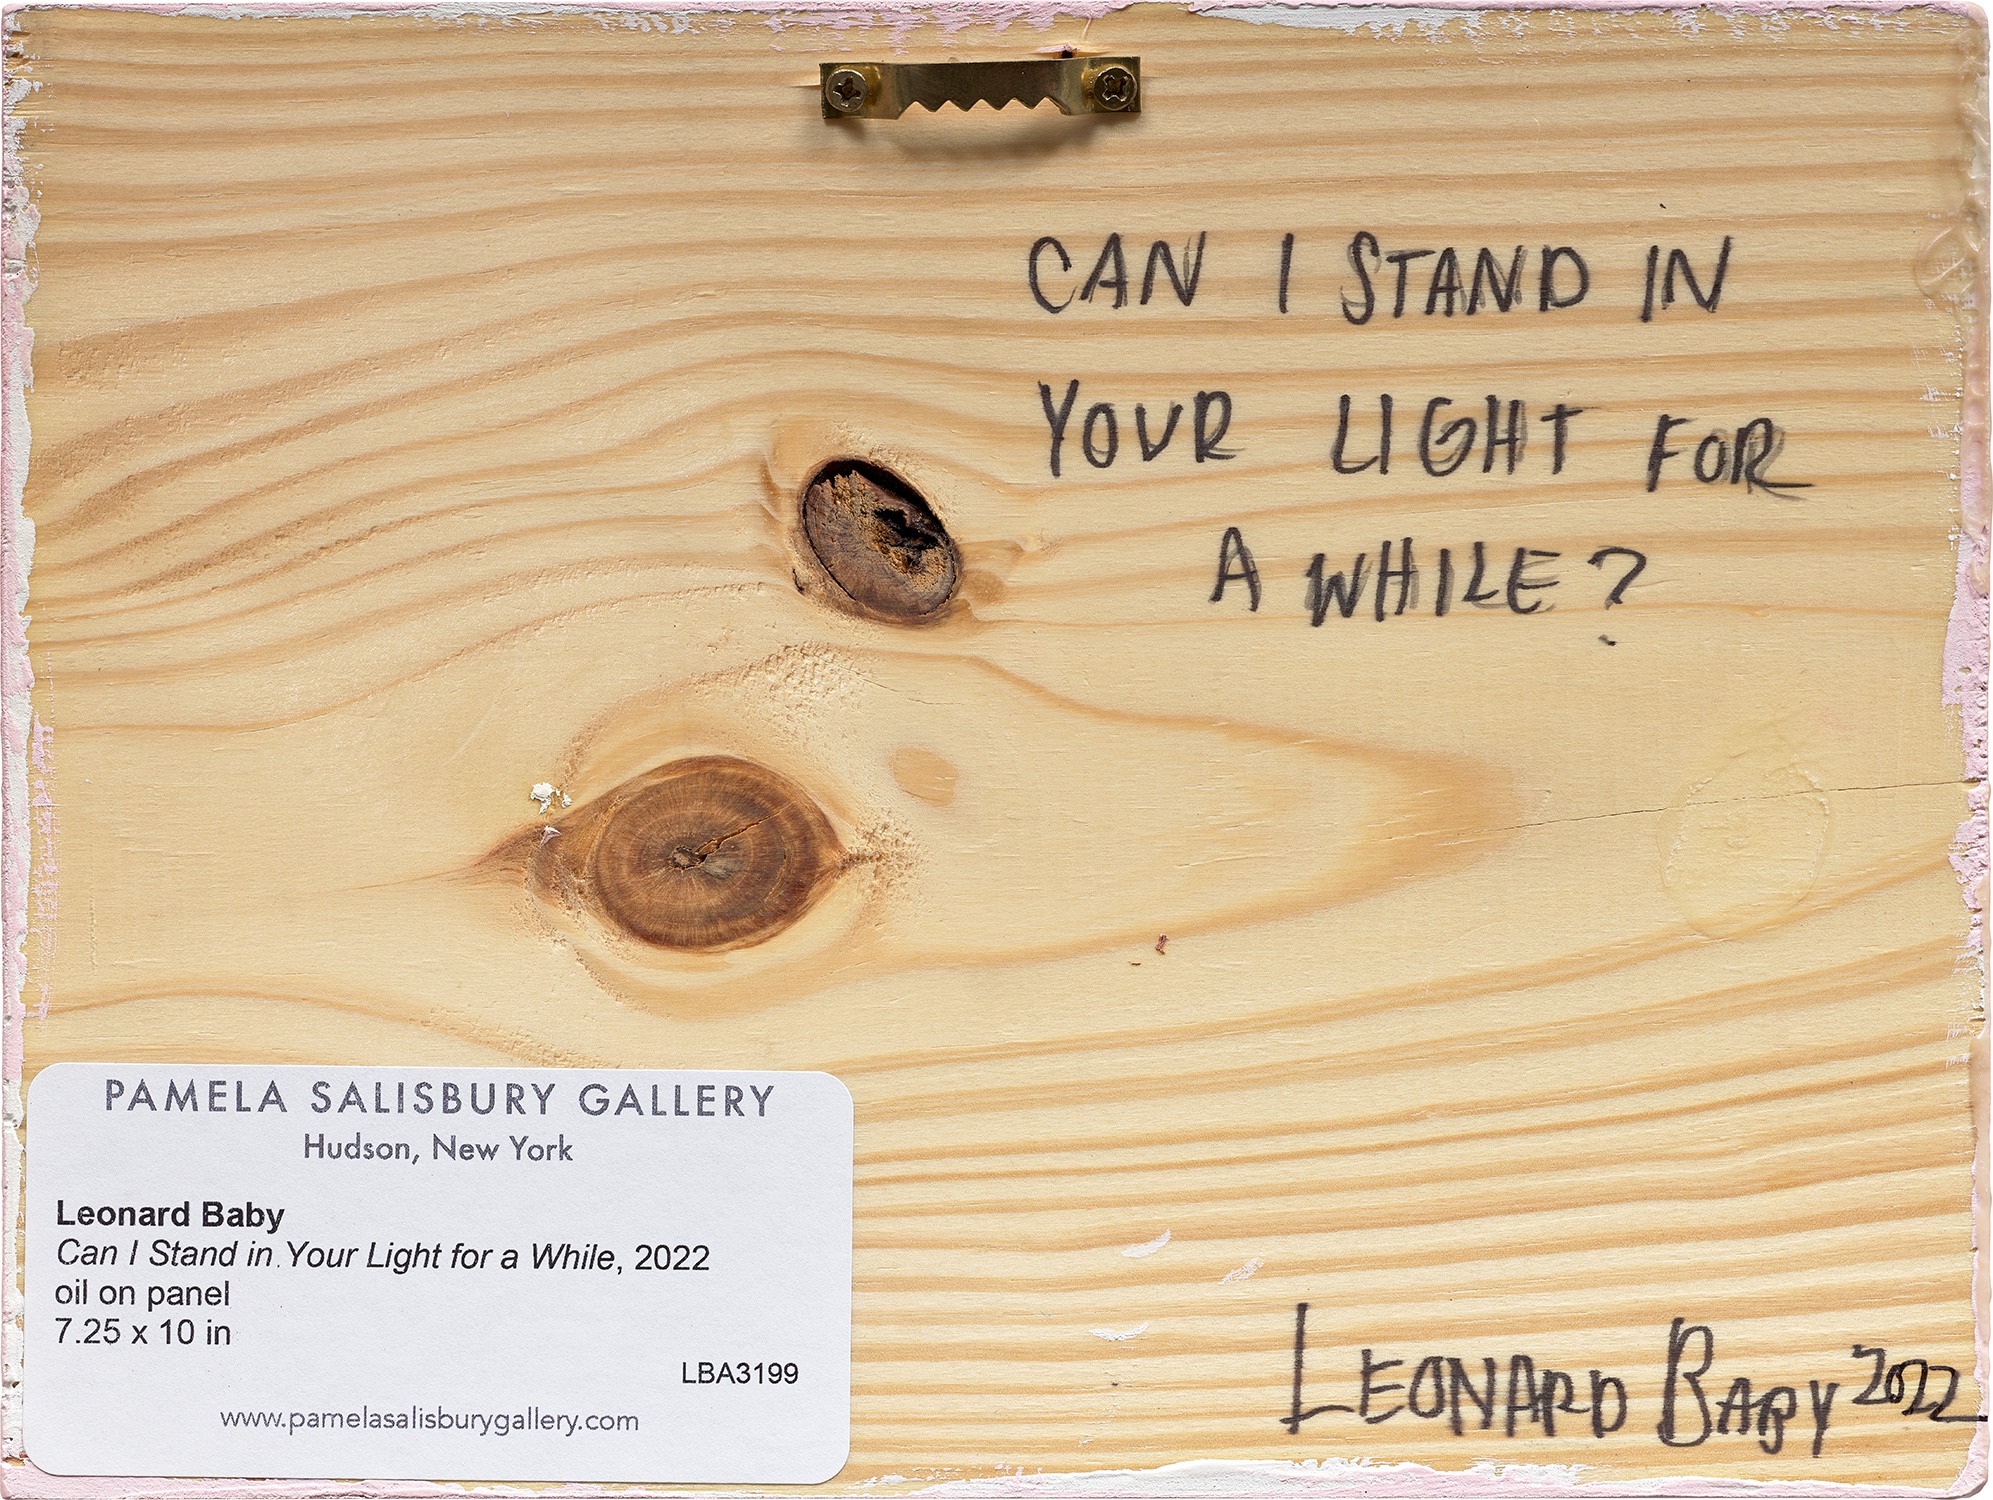 CAN I STAND IN
YOUR LIGHT FOR
A WHILE?
PAMELA SALISBURY GALLERY
Hudson, New York
Leonard Baby
Can I Stand in Your Light for a While, 2022
oil on panel
7.25 x 10 in
LBA3199
www.pamelasalisburygallery.com
LEONARD BABY 2022